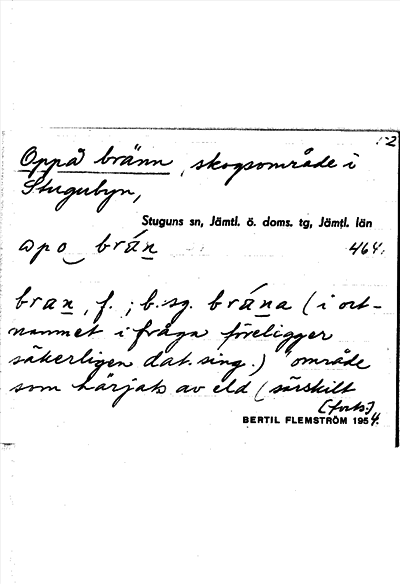 1-2
Oppå bränn, skogsområde i
Stugubyn,
Stuguns sn, Jämtl. ö. doms. tg, Jämtl. län
opo brán 464.
bran, f.; b.sg. brána (i ort-
namnet i fråga föreligger
säkerligen dat. sing.) "område
som härjats av eld (särskilt
(forts.)
BERTIL FLEMSTRÖM 1954.